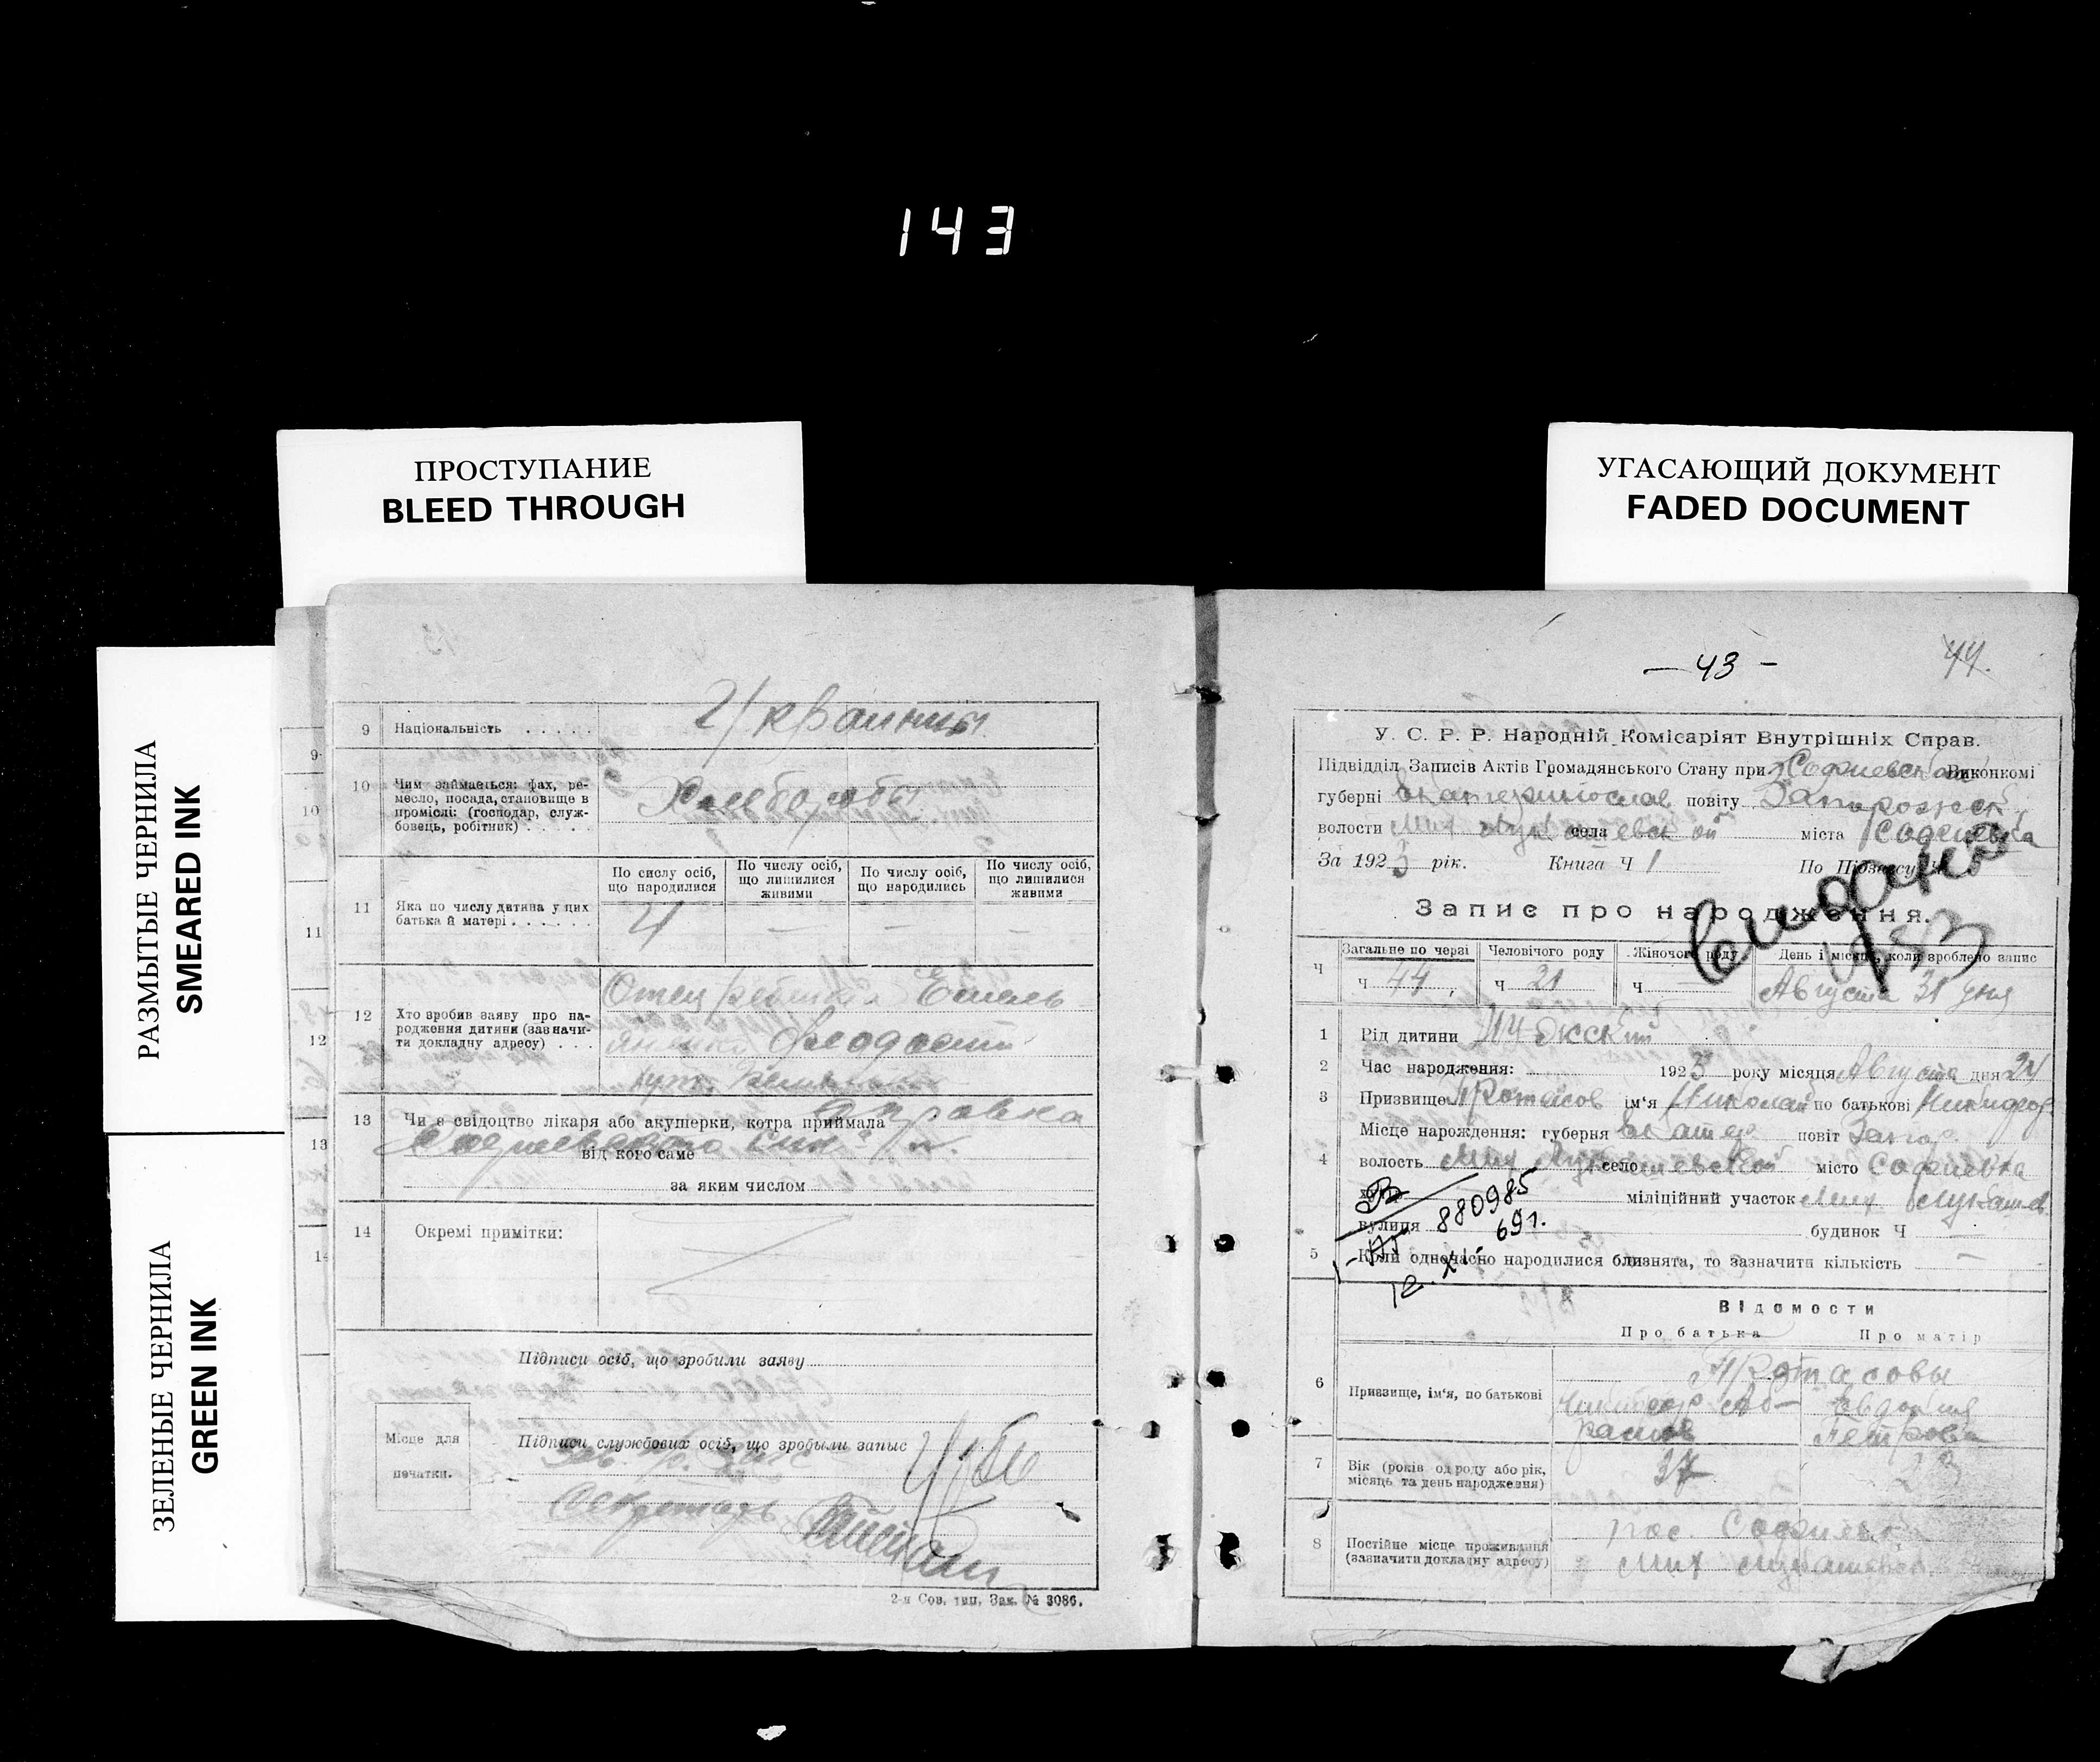 143
ПРОСТУПАНИЕ
BLEED THROUGH
УГАСАЮЩИЙ ДОКУМЕНТ
FADED DOCUMENT
РАЗМЫТЫЕ ЧЕРНИЛА
SMEARED INK
ЗЕЛЕНЫЕ ЧЕРНИЛА
GREEN INK
9 Національність . . . . .
10 Чим займається: фах, ре-
месло, посада, становище в
промислі: (господар, служ-
бовець, робітник) . . . . .
Хлеборобы
По сислу осіб, що народилися
По числу осіб, що лишилися живими
По числу осіб, що народились
По числу осіб, що лишилися живими
11 Яка по числу дитина у цих
батька й матері . . . . . .
12 Хто зробив заяву про на-
родження дитини (зазначи-
ти докладну адресу) . . .
Отец
13 Чи є свідоцтво лікаря або акушерки, котра приймала справка
від кого саме
за яким числом
14 Окремі примітки:
Підписи осіб, що зробили заяву
Місце для
печатки.
Підписи службових осіб, що зробыли запыс
Секретарь
2-я Сов. тип. Зак. № 3086.
9
10
11
12
13
14
— 43 —
44.
У. С. Р. Р. Народній Комісаріят Внутрішніх Справ.
Підвідділ Записів Актів Громадянського Стану при Софиевском Виконкомі
губерні Екатеринослав повіту Запорожск
волости Мих Лукашевской села міста Софиевка
За 1923 рік. Книга Ч 1 По Підзагсу Ч
Запис про народження.
видано
1953
Ч
Загальне по черзі
Человічого роду
Жіночого роду
День і місяць, коли зроблено запис
Ч 44
Ч 21
Ч —
Августа 31 дня
1 Рід дитини Мужский
2 Час народження: 1923 року місяця Августа дня 24
3 Призвище Протасов ім'я Николай по батькові Никифор
4 Місце нарождення: губерня Екатер. повіт Запор.
волость Мих Лукашевской село місто Софиевка
міліційний участок Мих Лукашев.
вулиця будинок Ч —
880985
69г.
12. XI
5 Коли одночасно народилися близнята, то зазначити кількість —
Відомости
Про батька Про матір
6 Призвище, ім'я, по батькові
Протасовы
Никифор Аб-
рамов
Евдокия
Петровна
7 Вік (років одроду або рік,
місяць та день народження)
37
8 Постійне місце проживання
(зазначити докладну адресу)
пос. Софиевка
Мих Лукашевск.